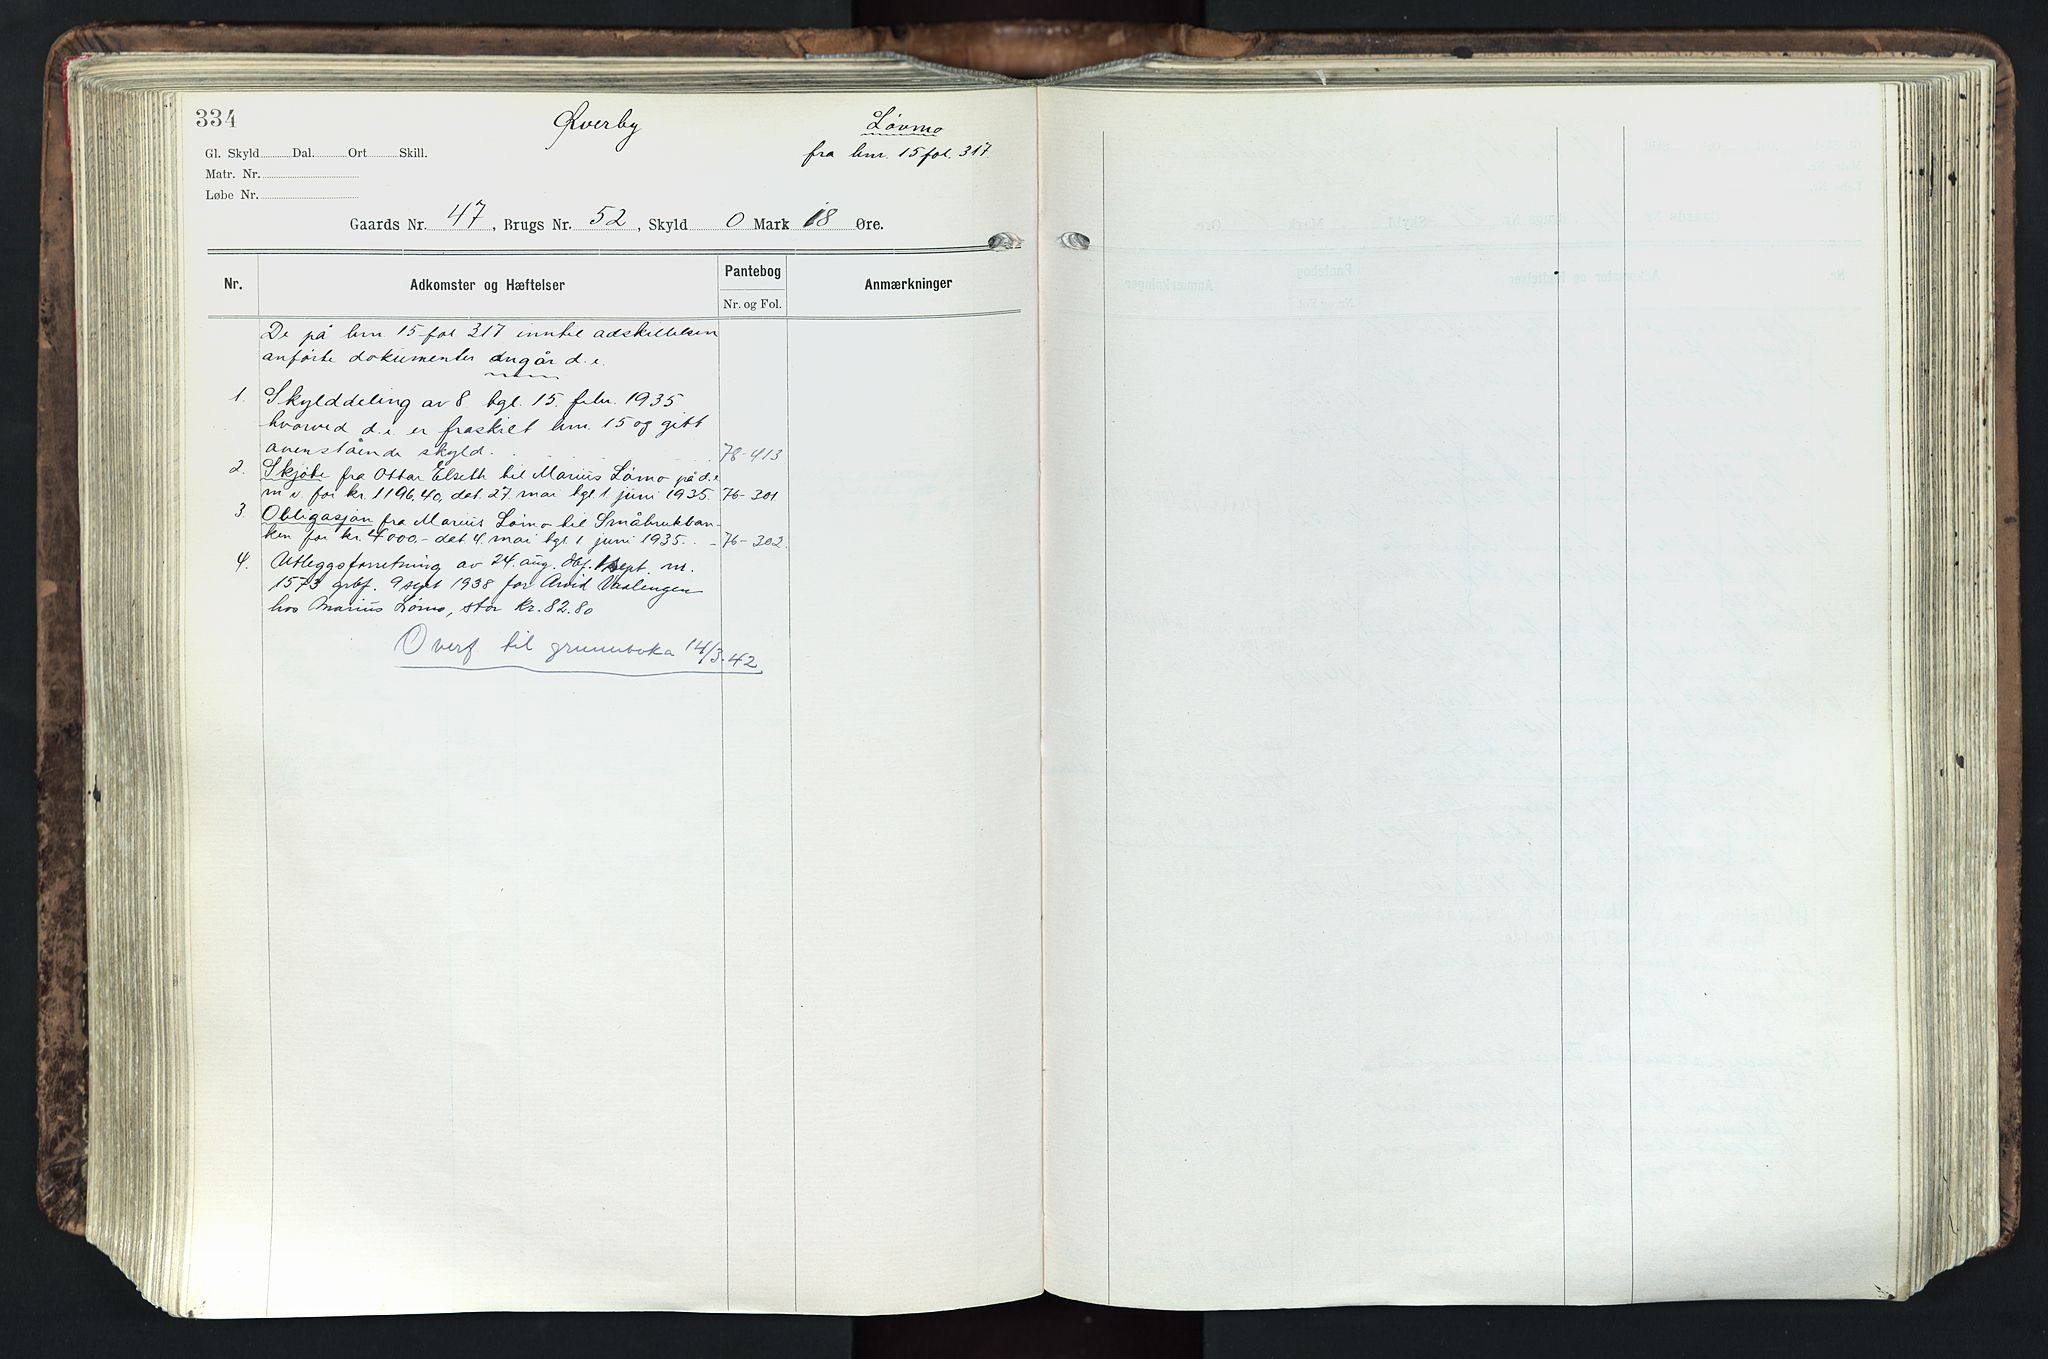 334
Øverby
Løvmo
fra bnr. 15 fol. 317
Gl. Skyld Dal. Ort Skill.
Matr. Nr.
Løbe Nr.
Gaards Nr. 47, Brugs Nr. 52, Skyld 0 Mark 18 Øre.
Nr. Adkomster og Hæftelser Pantebog Anmærkninger
Nr. og Fol.
De på bnr 15 fol 317 inntil adskillelsen
anførte dokumenter angår d.e.
1. Skylddeling av 8. tgl. 15. febr. 1935
hvorved d.e. er fraskilt bnr. 15 og gitt
ovenstående skyld. 78-413
2. Skjøte fra Ottar Elseth til Marius Løvmo på d.e
m v. for kr. 1196.40, dat. 27 mai tgl. 1 juni 1935. 76-301
3. Obligasjon fra Marius Løvmo til Småbrukban-
ken for kr. 4000.- dat. 4. mai tgl 1 juni 1935. - 76-302.
4. Utleggsforretning av 24. aug. dbf. 1 sept. nr.
1573 grbf. 9 sept 1938 for Arvid Vaalengen
hos Marius Løvmo, stor kr. 82.80
Overf til grunnboka 14/3-42